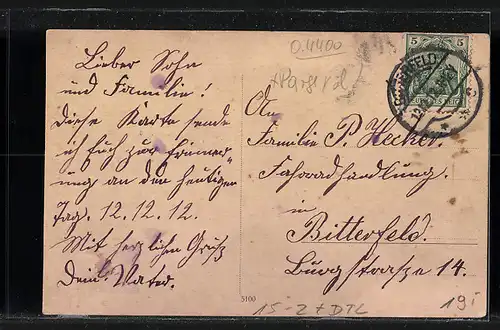 Lieber Sohn
und Familie!
Diese Karte sende
ich Euch zur Erinner-
ung an den heutigen
Tag. 12.12.12.
Mit herzlichen Gruß
Dein Vater.
0.4400
5 5
An
Familie P. Hecker.
Fahrradhandlung.
in
Bitterfeld.
Burgstrasze 14.
3100
15-2 + DTL
19